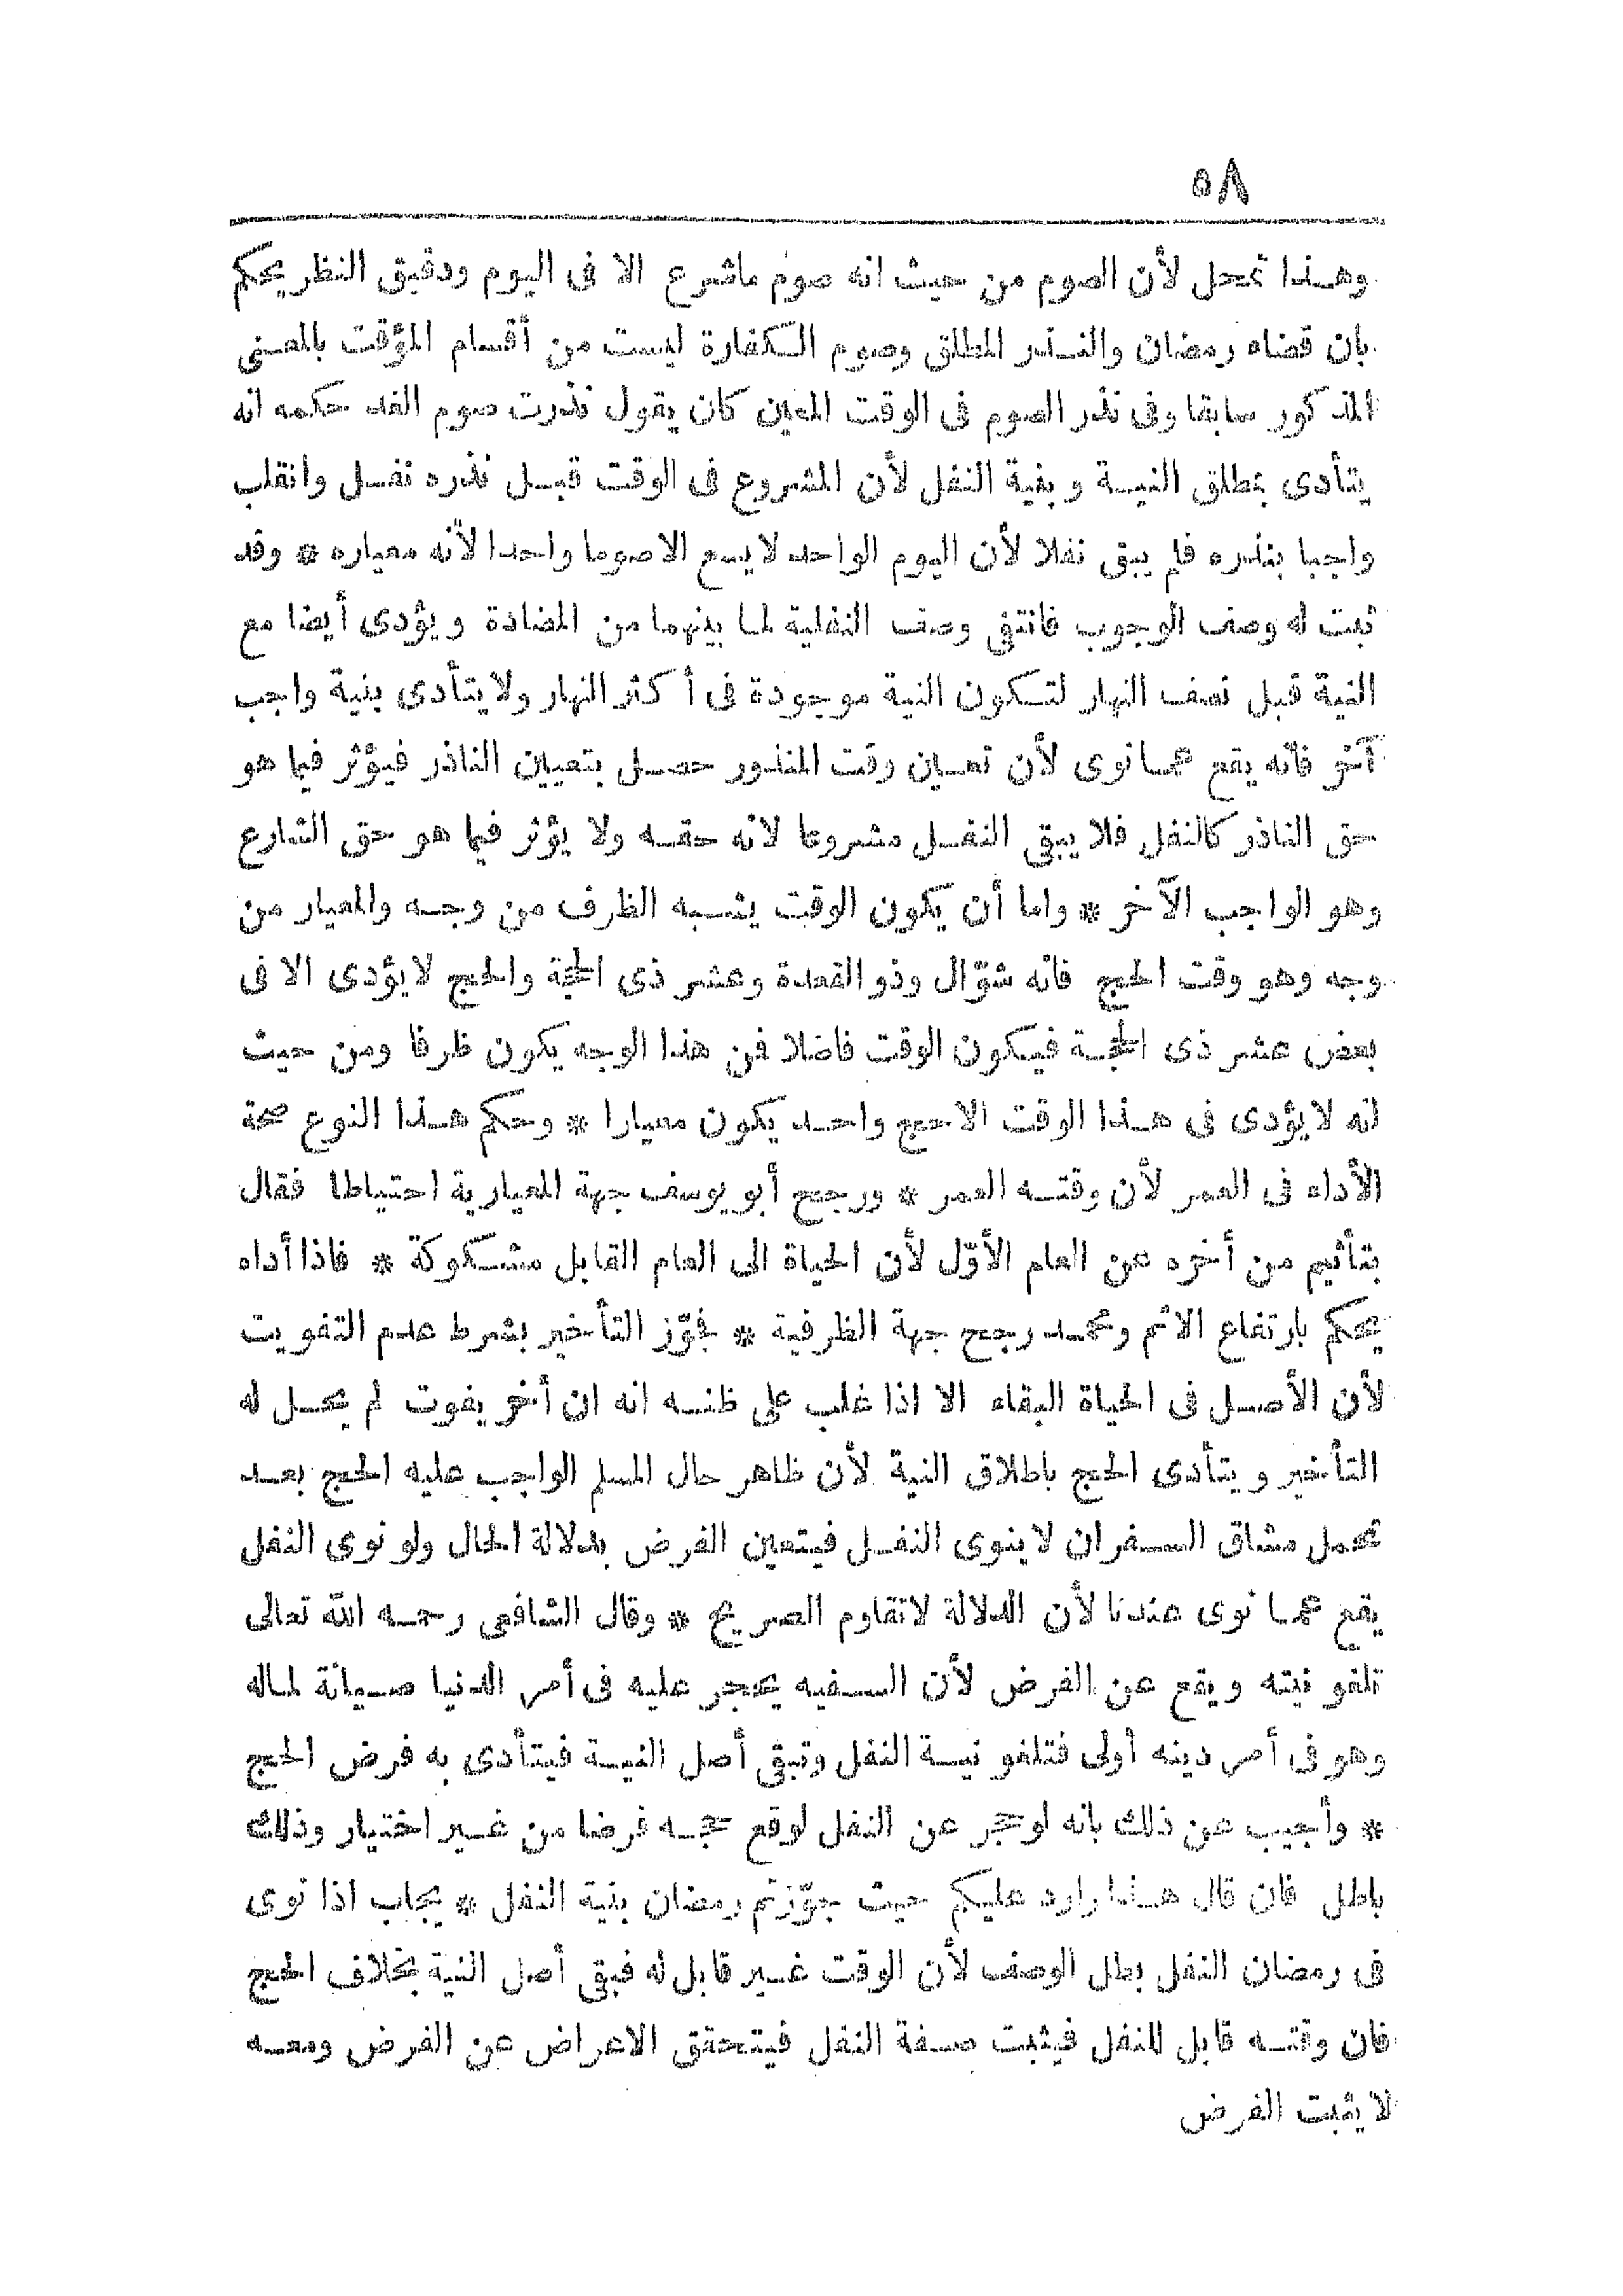 ٥٨
وهـذا تمحل لأن الصوم من حيث انه صوم ماشرع الا فى اليوم ودقيق النظر يحكم
بان قضاء رمضان والنـذر المطلق وصوم الـكفارة ليست من أقسام المؤقت بالمعـنى
المذكور سابقا وفى نذر الصوم فى الوقت المعين كان يقول نذرت صوم الغد حكمه انه
يتأدى بمطلق النيـة وبنية النفل لأن المشروع فى الوقت قبـل نذره نفـل وانقلب
واجبا بنذره فلم يبق نفلا لأن اليوم الواحد لا يسع الا صوما واحدا لأنه معياره * وقد
ثبت له وصف الوجوب فانتفى وصف النفلية لما بينهما من المضادة ويؤدى أيضا مع
النية قبل نصف النهار لتـكون النية موجودة فى أكثر النهار ولا يتأدى بنية واجب
آخر فانه يقع عمـا نوى لأن تعـين وقت المنذور حصـل بتعيين الناذر فيؤثر فيما هو
حق الناذر كالنفل فلا يبقى النفـل مشروعا لانه حقـه ولا يؤثر فيما هو حق الشارع
وهو الواجب الآخر * واما أن يكون الوقت يشـبه الظرف من وجـه والمعيار من
وجه وهو وقت الحج فانه شوّال وذو القعدة وعشر ذى الحجة والحج لا يؤدى الا فى
بعض عشر ذى الحجـة فيـكون الوقت فاضلا فمن هذا الوجه يكون ظرفا ومن حيث
انه لا يؤدى فى هـذا الوقت الا حج واحـد يكون معيارا * وحكم هـذا النوع صحة
الأداء فى العمر لأن وقتـه العمر * ورجح أبو يوسف جهة المعيارية احتياطا فقال
بتأثيم من أخره عن العام الأوّل لأن الحياة الى العام القابل مشـكوكة * فاذا أداه
يحكم بارتفاع الاثم ومحمـد رجح جهة الظرفية * فجوّز التأخير بشرط عدم التفويت
لأن الأصـل فى الحياة البقاء الا اذا غلب على ظنـه انه ان أخر يفوت لم يحـل له
التأخير ويتأدى الحج باطلاق النية لأن ظاهر حال المسلم الواجب عليه الحج بعـد
تحمل مشاق السـفر ان لا ينوى النفـل فيتعين الفرض بدلالة الحال ولو نوى النفل
يقع عمـا نوى عندنا لأن الدلالة لاتقاوم الصريح * وقال الشافعى رحمـه الله تعالى
تلغو نيته ويقع عن الفرض لأن السـفيه يحجر عليه فى أمر الدنيا صـيانة لماله
وهو فى أمر دينه أولى فتلغو نيـة النفل وتبقى أصل النيـة فيتأدى به فرض الحج
* وأجيب عن ذلك بانه لو حجر عن النفل لوقع حجـه فرضا من غـير اختيار وذلك
باطل فان قال هـذا وارد عليكم حيث جوّزتم رمضان بنية النفل * يجاب اذا نوى
فى رمضان النفل بطل الوصف لأن الوقت غـير قابل له فبقى أصل النية بخلاف الحج
فان وقتـه قابل للنفل فيثبت صـفة النفل فيتحقق الاعراض عن الفرض ومعـه
لا يثبت الفرض